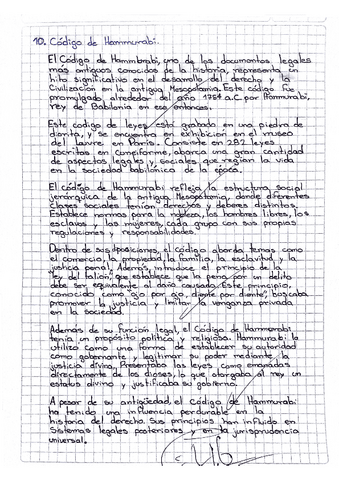 10. Código de Hammurabi.
El Código de Hammurabi, uno de los documentos legales
más antiguos conocidos de la historia, representa un
hito significativo en el desarrollo del derecho y la
Civilización en la antigua Mesopotamia. Este código fue
promulgado alrededor del año 1754 a.C. por Hammurabi,
rey de Babilonia en ese entonces.
Este codigo de leyes está grabado en una piedra de
diorita, y se encuentra en exhibicion en el museo
del Louvre en Paris. Consiste en 282 leyes
escritas en cuneiforme, abarca una gran cantidad
de aspectos legales y sociales que regían la vida
en la sociedad babilónica de la época.
El código de Hammurabi refleja la estructura social
jerárquica de la antigua Mesopotamia, donde diferentes
Clases sociales tenían derechos y deberes distintos.
Establece normas para la nobleza, los hombres libres, los
esclavos y las mujeres, cada grupo con sus propias
regulaciones y responsabilidades.
Dentro de sus disposiciones, el código aborda temas como
el comercio, la propiedad, la familia, la esclavitud y la
justicia penal. Además, introduce el principio de la
ley del talión, que establece que la pena por un delito
debe ser equivalente al daño causado. Este principio,
conocido como ojo por ojo, diente por diente, buscaba
promover la justicia y limitar la venganza privada
en la sociedad.
Además de su función legal, el Código de Hammurabi
tenía un propósito político y religioso. Hammurabi la
utilizó como una forma de establecer su autoridad
como gobernante y legitimar su poder mediante la
justicia divina. Presentaba las leyes como emanadas
directamente de los dioses, lo que otorgaba al rey un
estatus divino y justificaba su gobierno.
A pesar de su antigüedad, el Código de Hammurabi
ha tenido una influencia perdurable en la
historia del derecho. Sus principios han influido en
Sistemas legales posteriores y en la jurisprudencia
universal.